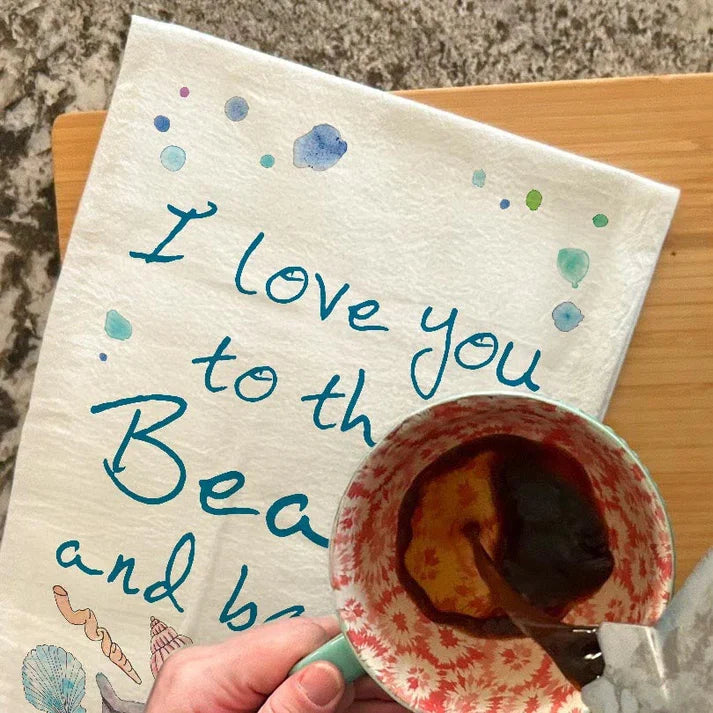 I love you
to th
Bea
and b